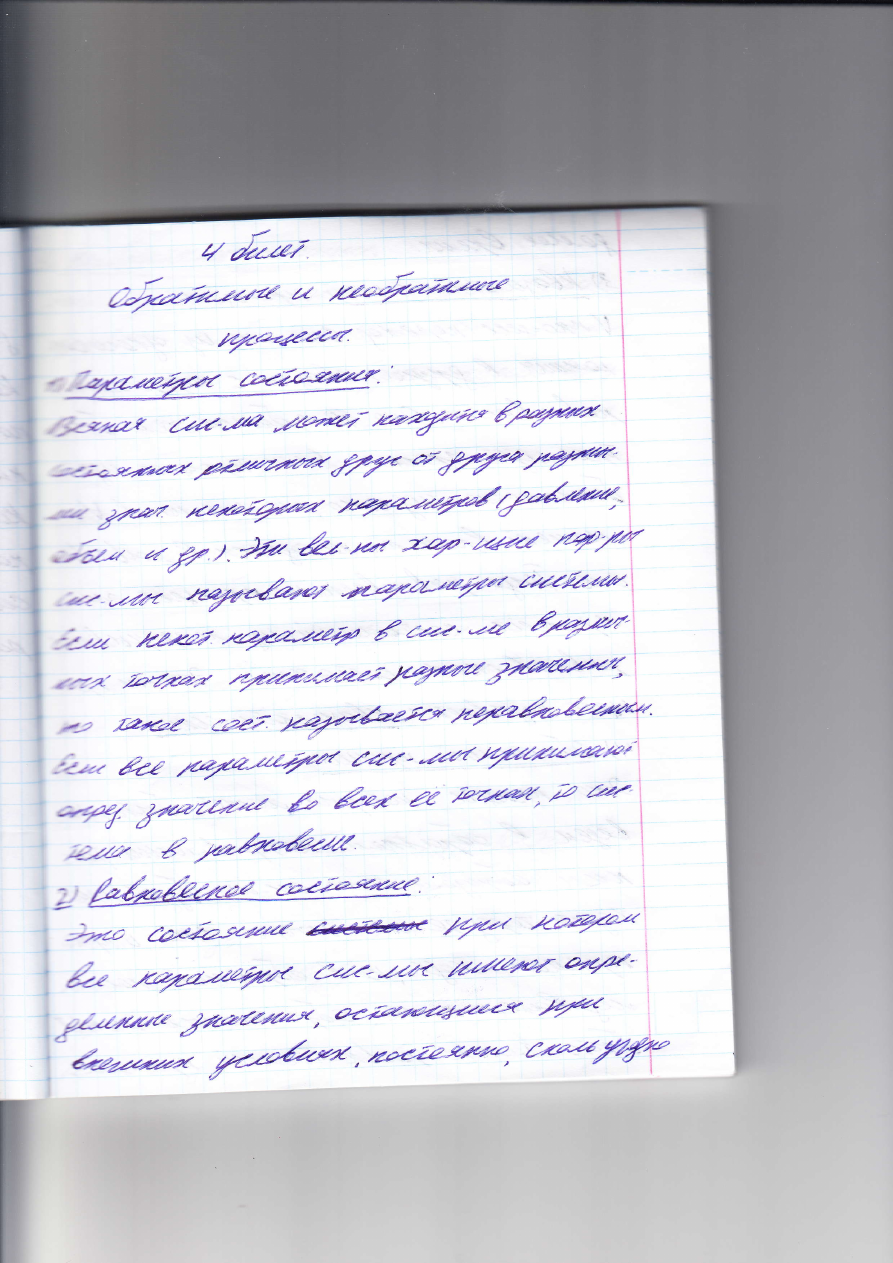 4 билет.
Обратимые и необратимые
процессы.
1) Параметры состояния:
Всякая сис-ма может находится в разных
состояниях отличных друг от друга разны-
ми знач. некоторых параметров (давление,
объем и др.). Эти вел-ны хар-щие пар-ры
сис-мы называют параметры системы.
Если некот параметр в сис-ме в разны-
ных точках принимает разные значения,
то такое сост. называется неравновесным.
Если все параметры сис-мы принимают
опред значение во всех ее точках, то сис-
тема в равновесии.
2) Равновесное состояние:
Это состояние при котором
все параметры сис-мы имеют опре-
деленные значения, остающиеся при
внешних условиях, постоянно, сколь угодно